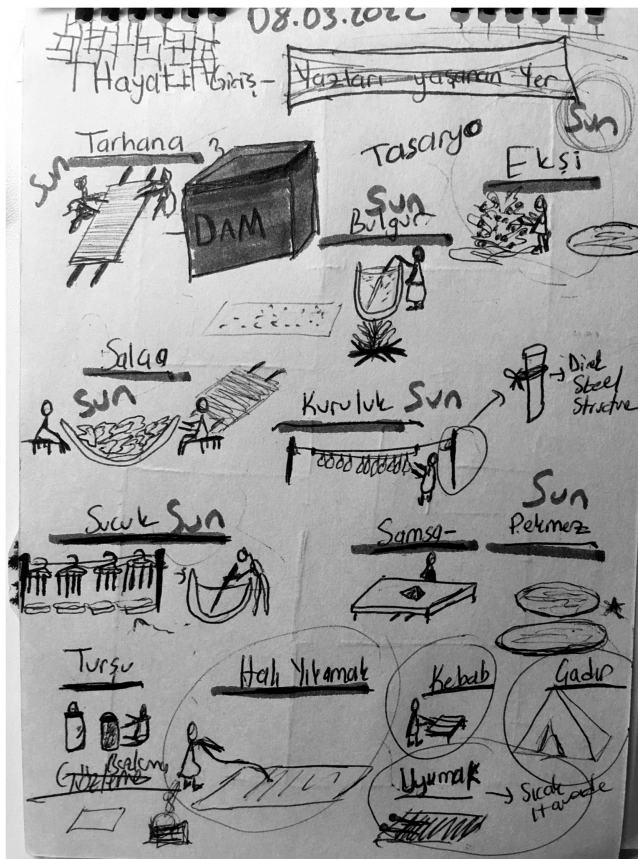 08.03.2022
Hayat Giriş-
Yazları yaşanan Yer
Sun
Tarhana
Sun
DAM
Sun
Bulgur
Ekşi
Salça
Sun
Kuruluk Sun
Direk
Steel
Structure
Sucuk Sun
Samsa-
Sun
Pekmez
Turşu
Halı Yıkamak
Kebab
Çadır
Uyumak
→ Sıcak
Havada